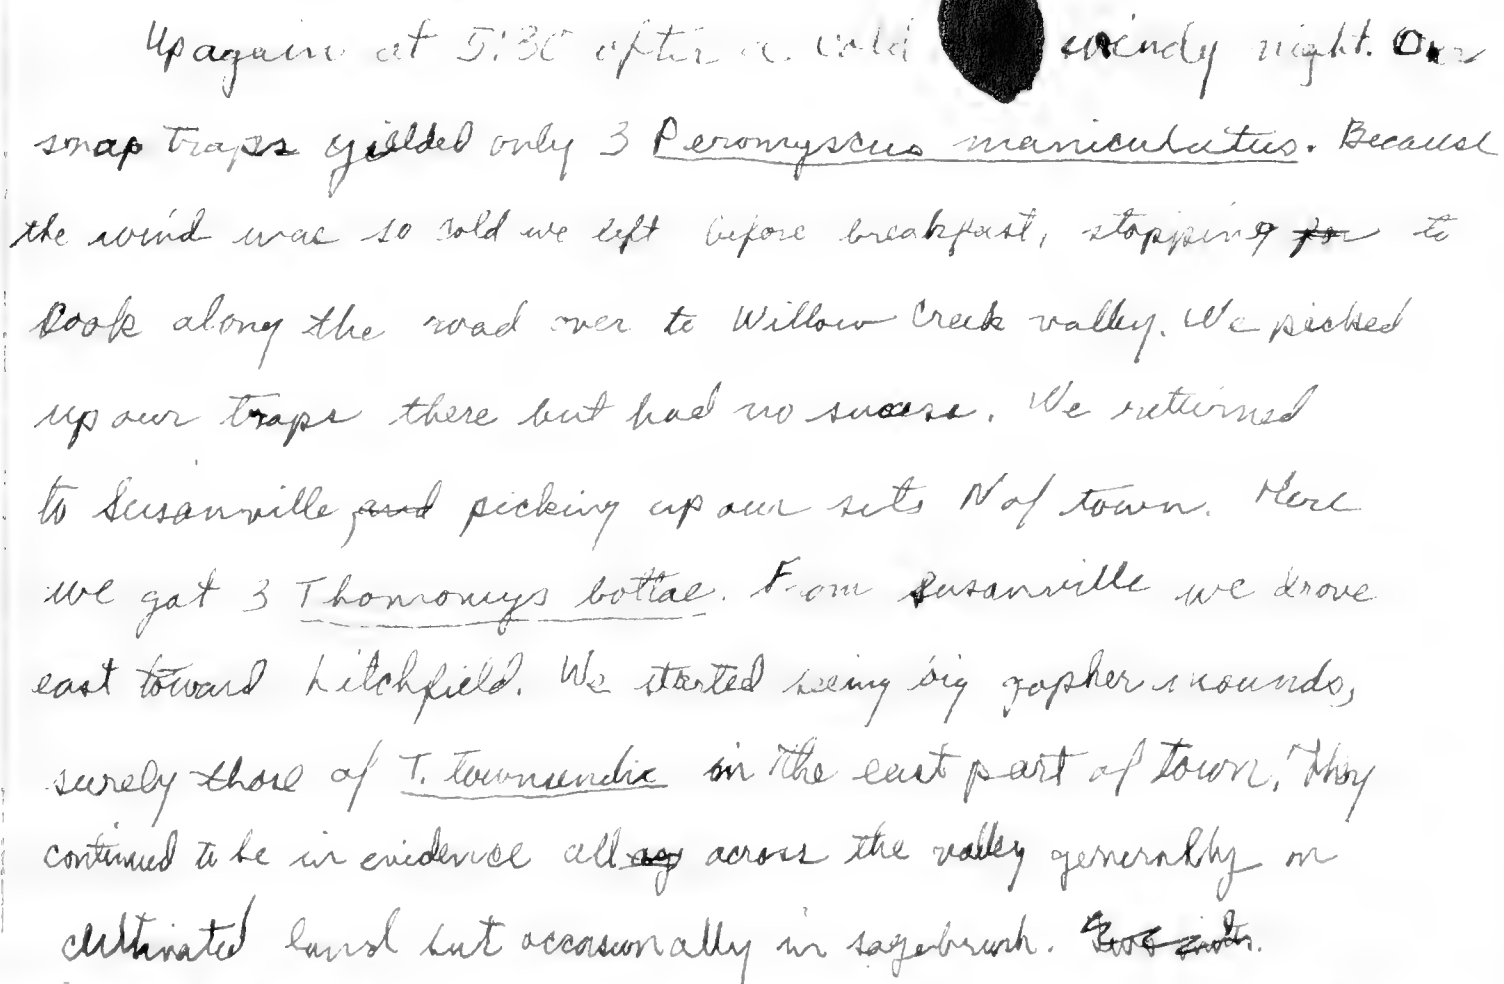 Up again at 5:30 after a cold windy night. Our
snap traps yielded only 3 Peromyscus maniculatus. Because
the wind was so cold we left before breakfast, stopping for to
look along the road over to Willow Creek valley. We picked
up our traps there but had no success. We returned
to Susanville, and picking up our sets N of town. Here
we got 3 Thomomys bottae. From Susanville we drove
east toward Litchfield. We started seeing big gopher mounds,
surely those of T. townsendii in the east part of town. They
continued to be in evidence all across the valley generally on
cultivated land but occasionally in sagebrush.